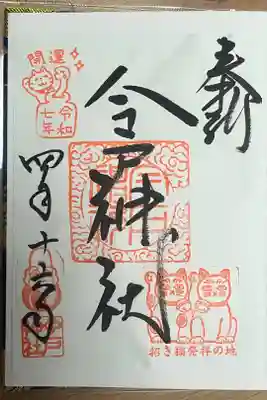 奉拝
今戸神社
開運
令和
七年
四月十
招き猫発祥の地